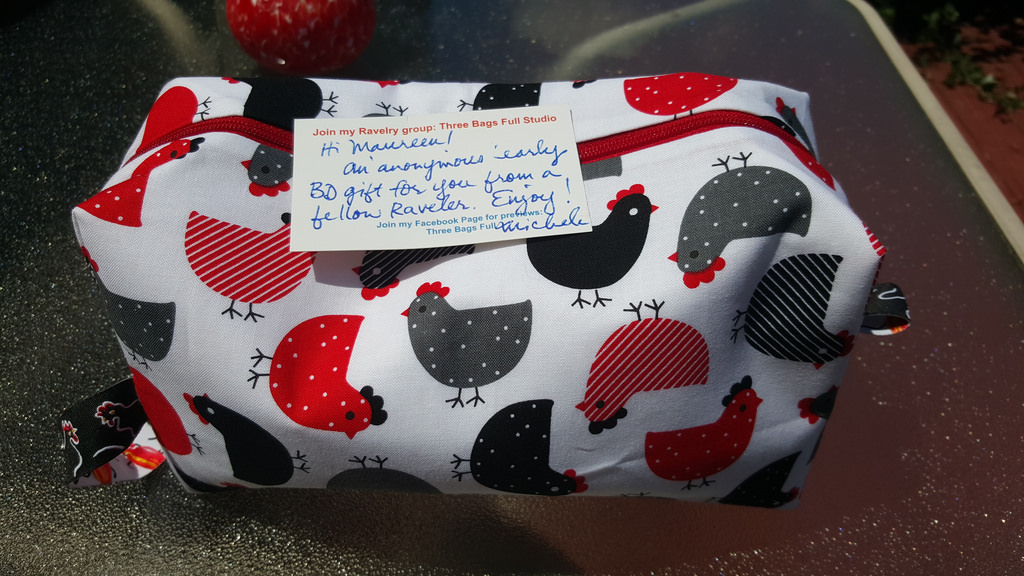 Join my Ravelry group: Three Bags Full Studio
Hi Maureen!
An anonymous early
BD gift for you from a
fellow Raveler. Enjoy!
Join my Facebook Page for previews:
Three Bags Full
Michele